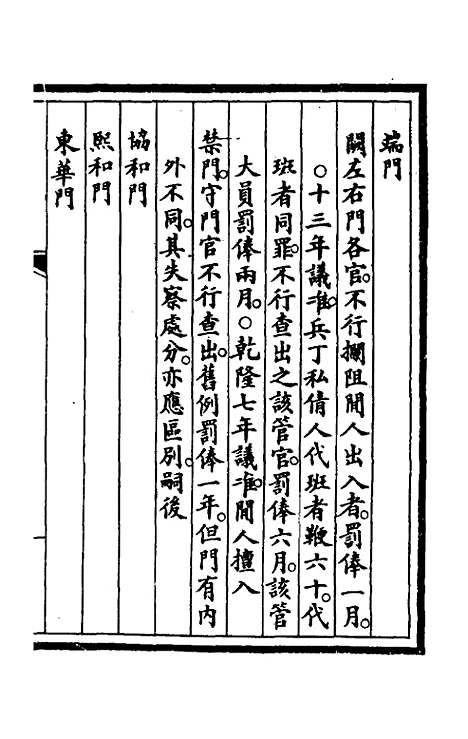 端門
闕左右門各官。不行攔阻閒人出入者。罰俸一月。
○十三年議准。兵丁私倩人代班者鞭六十。代
班者同罪。不行查出之該管官。罰俸六月。該管
大員罰俸兩月。○乾隆七年議准。閒人擅入
禁門。守門官不行查出。舊例罰俸一年。但門有內
外不同。其失察處分。亦應區別。嗣後
協和門
熙和門
東華門